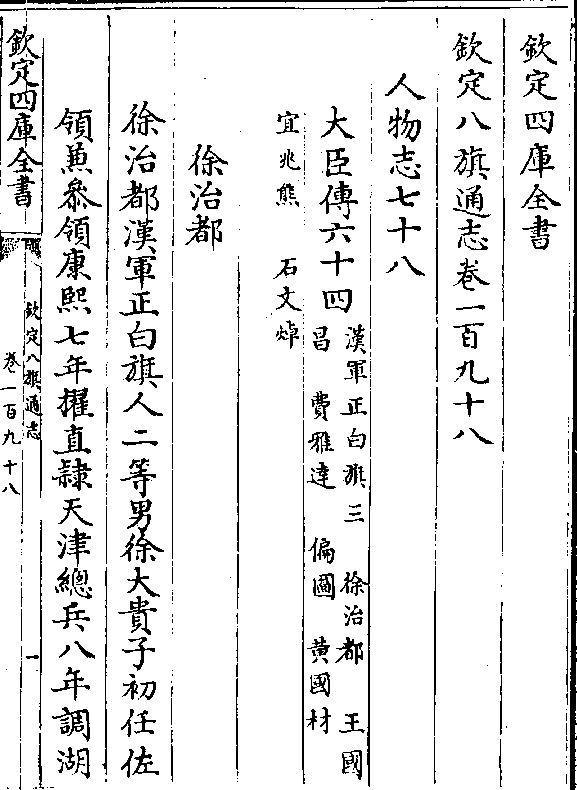 欽定四庫全書
欽定八旗通志卷一百九十八
人物志七十八
大臣傳六十四
漢軍正白旗三 徐治都 王國
昌 費雅達 偏圖 黄國材
宜兆熊 石文焯
徐治都
徐治都漢軍正白旗人二等男徐大貴子初任佐
領兼叅領康熙七年擢直隸天津總兵八年調湖
欽定四庫全書
欽定八旗通志
卷一百九十八
一